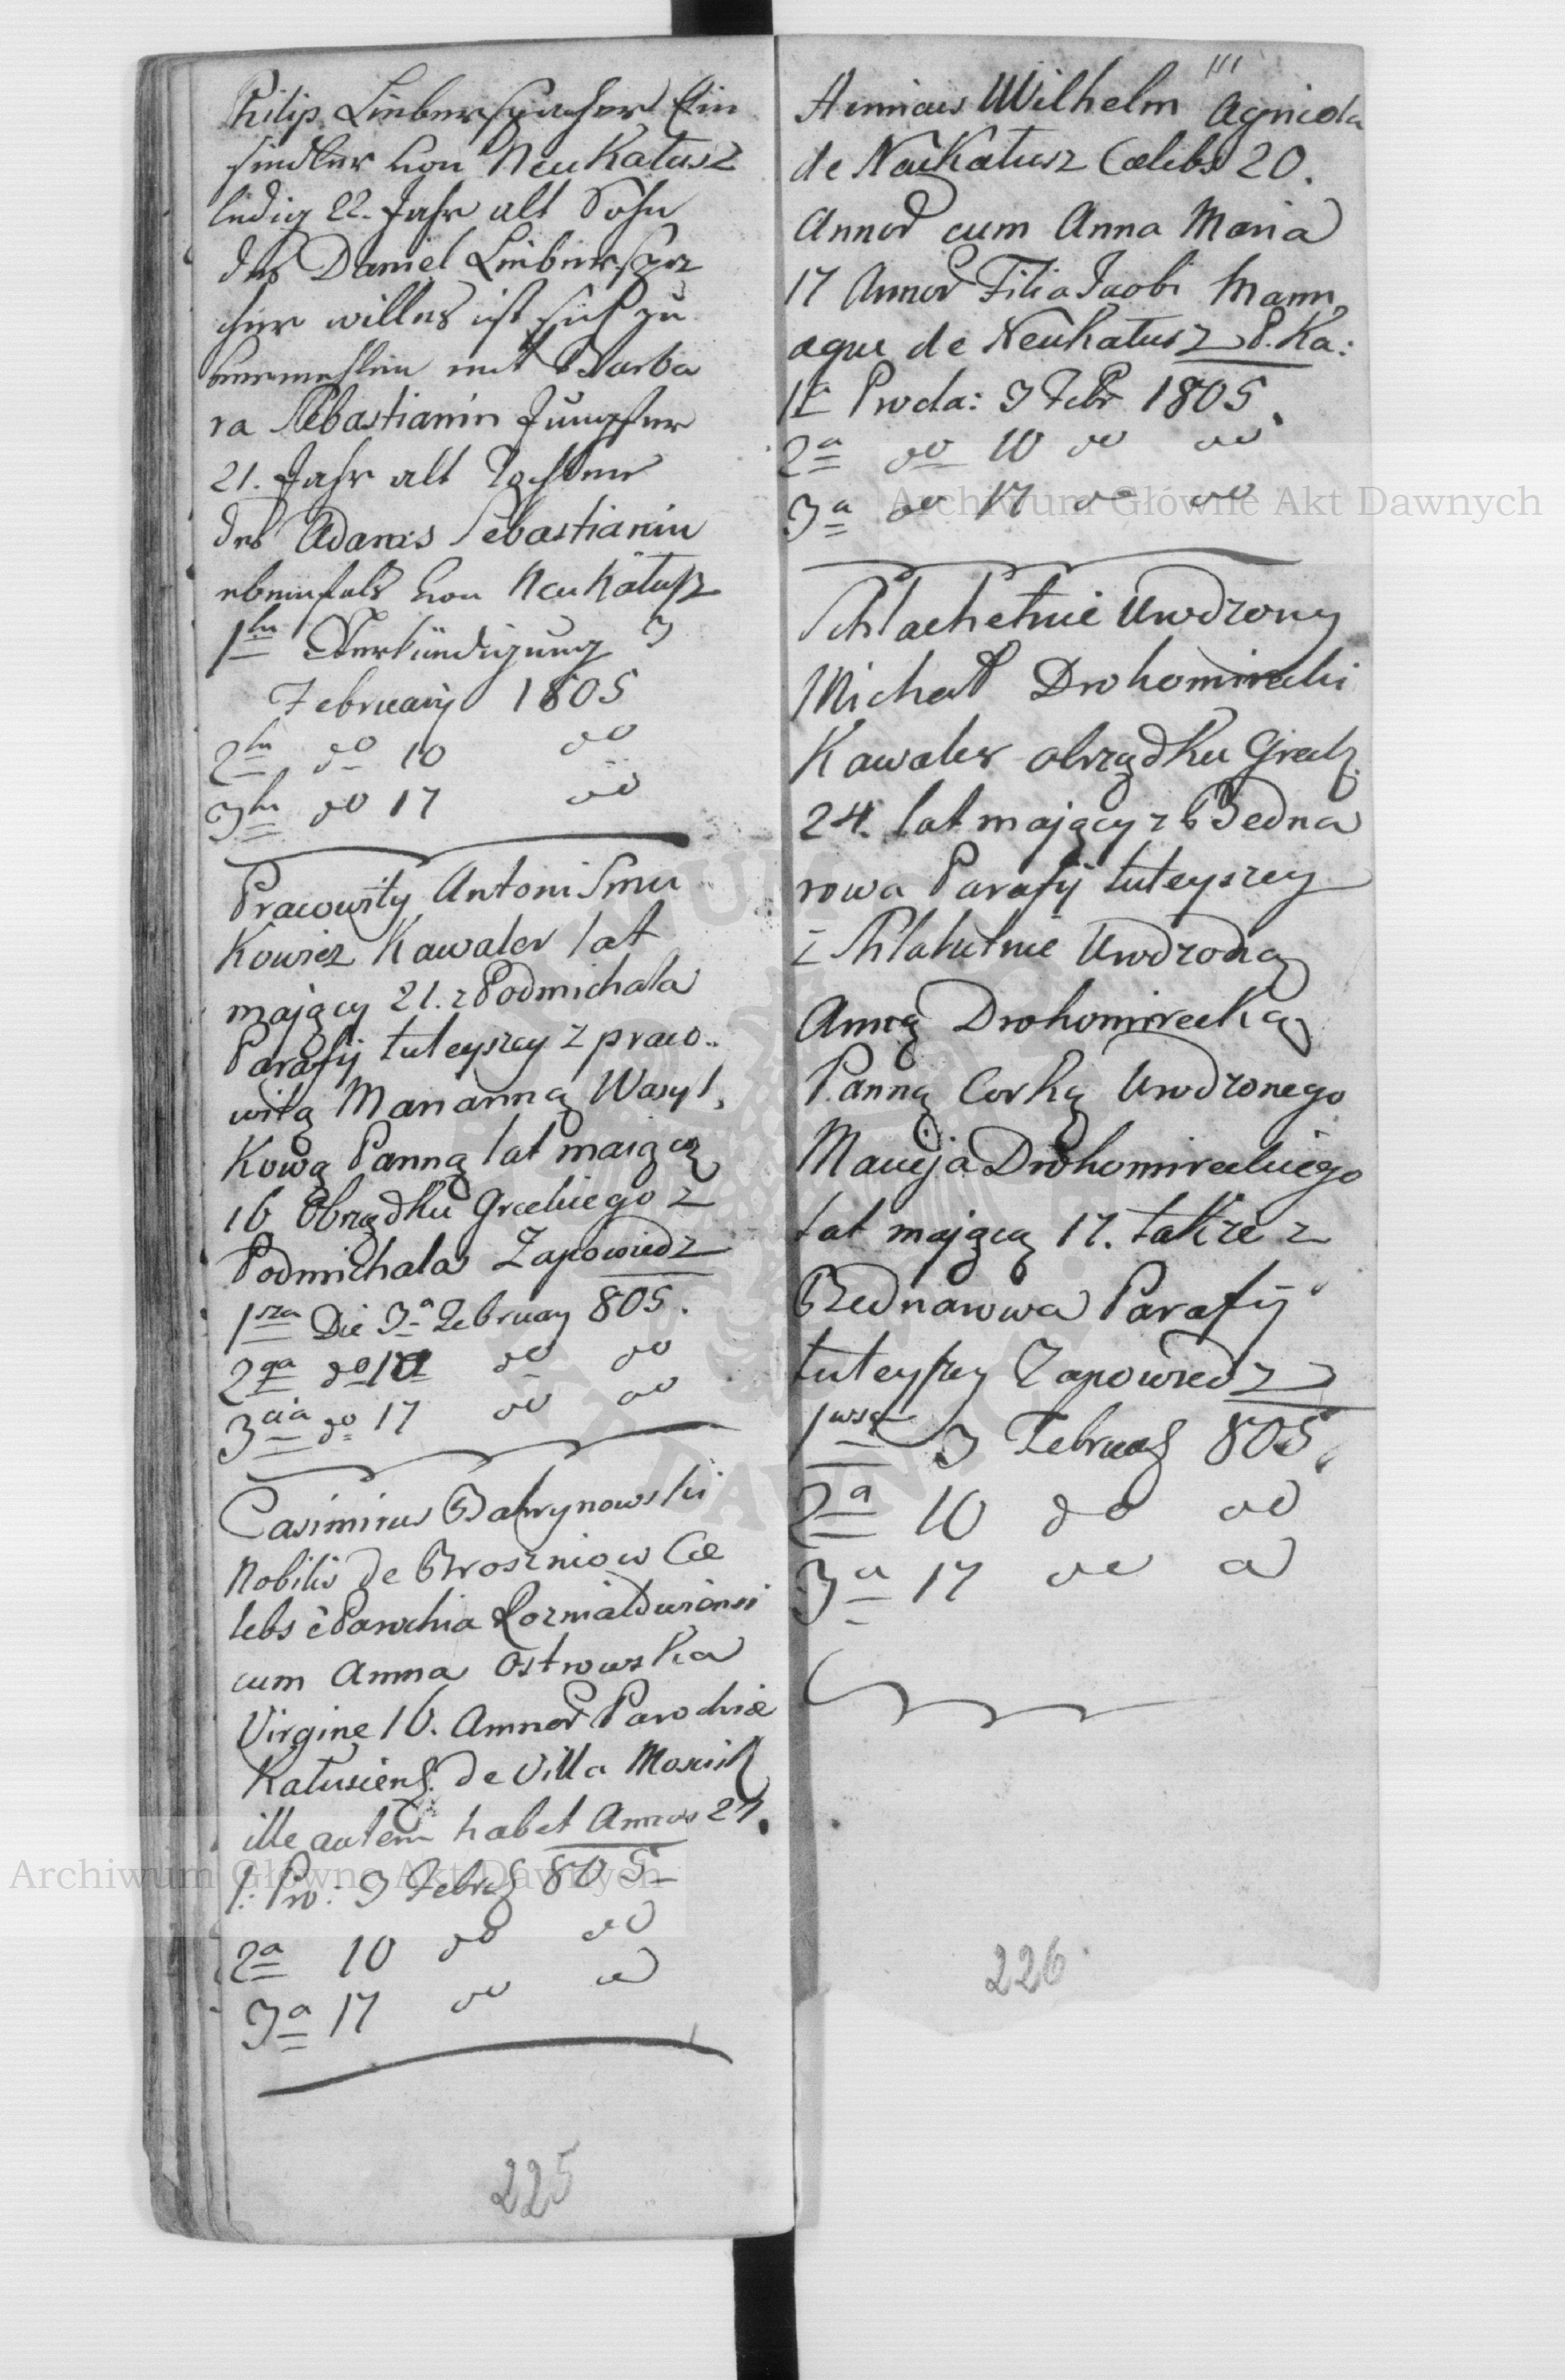 Philip Lieberspacher Ein
siedler von Neu Kałusz
ledig 22. Jahr alt Sohn
des Daniel Lieberspa
cher willens ist sich zu
vermehlen mit Barba
ra Sebastianin Jungfer
21. Jahr alt Tochter
des Adams Sebastianin
ebenfals von Neu Kałusz
1te Verkündigung 3
February 1805
2te do 10 do
3te do 17 do
Pracowity Antoni Smu
Kowicz Kawaler lat
mający 21. z Podmichala
Parafij tuteyszey z praco..
witą Marianną Wasyl,
Kową Panną lat maiącą
16 Obrządku Greckiego z
Podmichala Zapowiedz
1sza Die 3a February 805.
2ga do 10 do do
3cia do 17 do do
Casimirus Bakrynowski
Nobilis de Broszniow Cæ
lebs è Parochia Rozniatoviensi
cum Anna Ostrowska
Virgine 16. Annor Parochiæ
Kałusiens. de Villa
ille autem habet Annos 27.
1. Pro: 3 Febr 805
2a 10 do do
3a 17 do do
225
111
Henricus Wilhelm Agricola
de Neukałusz Cælebs 20.
Annor cum Anna Maria
17 Annor Filia Jacobi Mann
æque de Neukałusz P. Ka:
1a Procla: 3 Febr 1805.
2a do 10 do do
3a do 17 do do
Schlachetnie Urodzony
Michał Drohomirecki
Kawaler obrządku Greck.
24. lat mający z Bedna
rowa Parafij tuteyszey
z Schlahetnie Urodzoną
Anną Drohomirecką
Panną Corką Urodzonego
Macieja Drohomireckiego
lat mającą 17. także z
Bednarowa Parafij
tuteyszey Zapowiedz
1wsza 3 February 805.
2a 10 do do
3a 17 do do
226
Archiwum Główne Akt Dawnych
Archiwum Główne Akt Dawnych